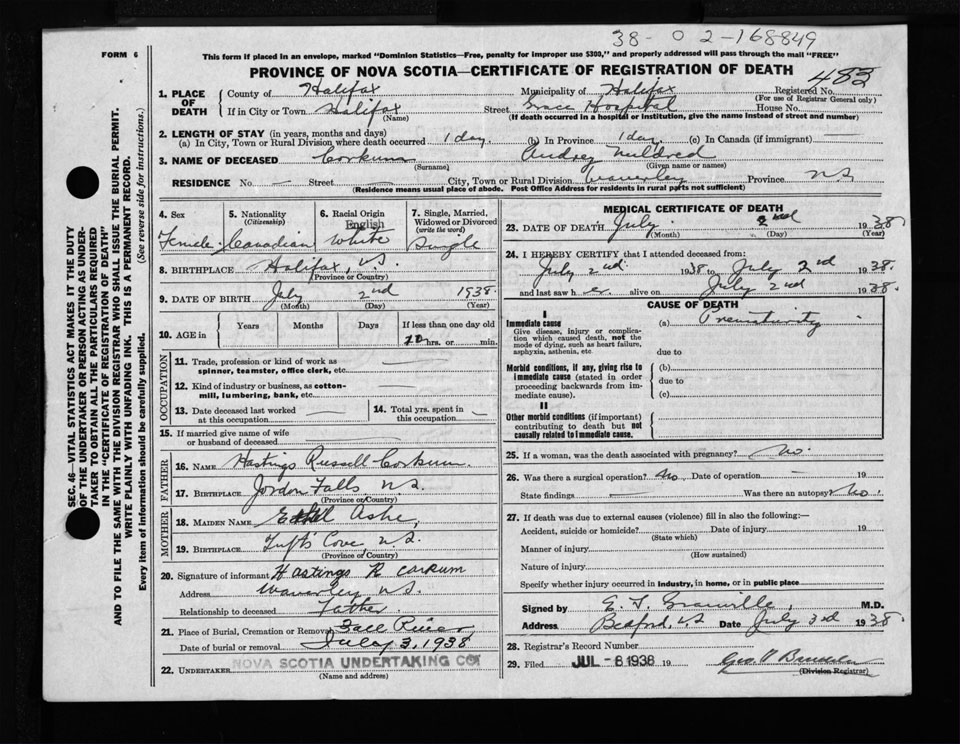 38-02-168849
FORM 6
This form if placed in an envelope, marked "Dominion Statistics—Free, penalty for improper use $300," and properly addressed will pass through the mail "FREE"
PROVINCE OF NOVA SCOTIA—CERTIFICATE OF REGISTRATION OF DEATH
483
1. PLACE OF DEATH
County of Halifax
Municipality of Halifax
Registered No.
(For use of Registrar General only)
If in City or Town Halifax
(Name)
Street Grace Hospital
House No.
(If death occurred in a hospital or institution, give the name instead of street and number)
2. LENGTH OF STAY (in years, months and days)
(a) In City, Town or Rural Division where death occurred 1 day (b) In Province 1 day (c) In Canada (if immigrant) —
3. NAME OF DECEASED Corkum Audrey Mildred
(Surname) (Given name or names)
RESIDENCE No. — Street — City, Town or Rural Division Waverley Province N.S.
(Residence means usual place of abode. Post Office Address for residents in rural parts not sufficient)
4. Sex
Female
5. Nationality
(Citizenship)
Canadian
6. Racial Origin
English
White
7. Single, Married, Widowed or Divorced
(write the word)
Single
8. BIRTHPLACE Halifax, N.S.
(Province or Country)
9. DATE OF BIRTH July 2nd 1938
(Month) (Day) (Year)
10. AGE in
Years Months Days If less than one day old
12 hrs. or min.
OCCUPATION
11. Trade, profession or kind of work as
spinner, teamster, office clerk, etc. —
12. Kind of industry or business, as cotton-
mill, lumbering, bank, etc. —
13. Date deceased last worked
at this occupation —
14. Total yrs. spent in
this occupation —
15. If married give name of wife
or husband of deceased —
FATHER
16. NAME Hastings Russell Corkum
17. BIRTHPLACE Jordon Falls, N.S.
(Province or Country)
MOTHER
18. MAIDEN NAME Ethel Ashe,
19. BIRTHPLACE Tuft's Cove, N.S.
(Province or Country)
20. Signature of informant Hastings R Corkum
Address Waverley N.S.
Relationship to deceased Father
21. Place of Burial, Cremation or Removal Fall River
Date of burial or removal July 3, 1938
22. UNDERTAKER NOVA SCOTIA UNDERTAKING CO
(Name and address)
MEDICAL CERTIFICATE OF DEATH
23. DATE OF DEATH July 2nd 1938
(Month) (Day) (Year)
24. I HEREBY CERTIFY that I attended deceased from:
July 2nd 1938 to July 2nd 1938.
and last saw her alive on July 2nd 1938.
CAUSE OF DEATH
I
Immediate cause
Give disease, injury or complica-
tion which caused death, not the
mode of dying, such as heart failure,
asphyxia, asthenia, etc
(a) Prematurity
due to
Morbid conditions, if any, giving rise to
immediate cause (stated in order
proceeding backwards from im-
mediate cause).
(b)
due to
(c)
II
Other morbid conditions (if important)
contributing to death but not
causally related to immediate cause.
25. If a woman, was the death associated with pregnancy? No.
26. Was there a surgical operation? No Date of operation — 19
State findings — Was there an autopsy No.
27. If death was due to external causes (violence) fill in also the following:—
Accident, suicide or homicide? Date of injury 19
(State which)
Manner of injury
(How sustained)
Nature of injury
Specify whether injury occurred in industry, in home, or in public place
Signed by E. T. Granville, M.D.
Address Bedford, N.S Date July 3rd 1938.
28. Registrar's Record Number
29. Filed JUL - 8 1938 19
(Division Registrar)
SEC. 46—VITAL STATISTICS ACT MAKES IT THE DUTY
OF THE UNDERTAKER OR PERSON ACTING AS UNDER-
TAKER TO OBTAIN ALL THE PARTICULARS REQUIRED
IN THE "CERTIFICATE OF REGISTRATION OF DEATH"
AND TO FILE THE SAME WITH THE DIVISION REGISTRAR WHO SHALL ISSUE THE BURIAL PERMIT.
WRITE PLAINLY WITH UNFADING INK. THIS IS A PERMANENT RECORD.
Every item of information should be carefully supplied. (See reverse side for instructions.)